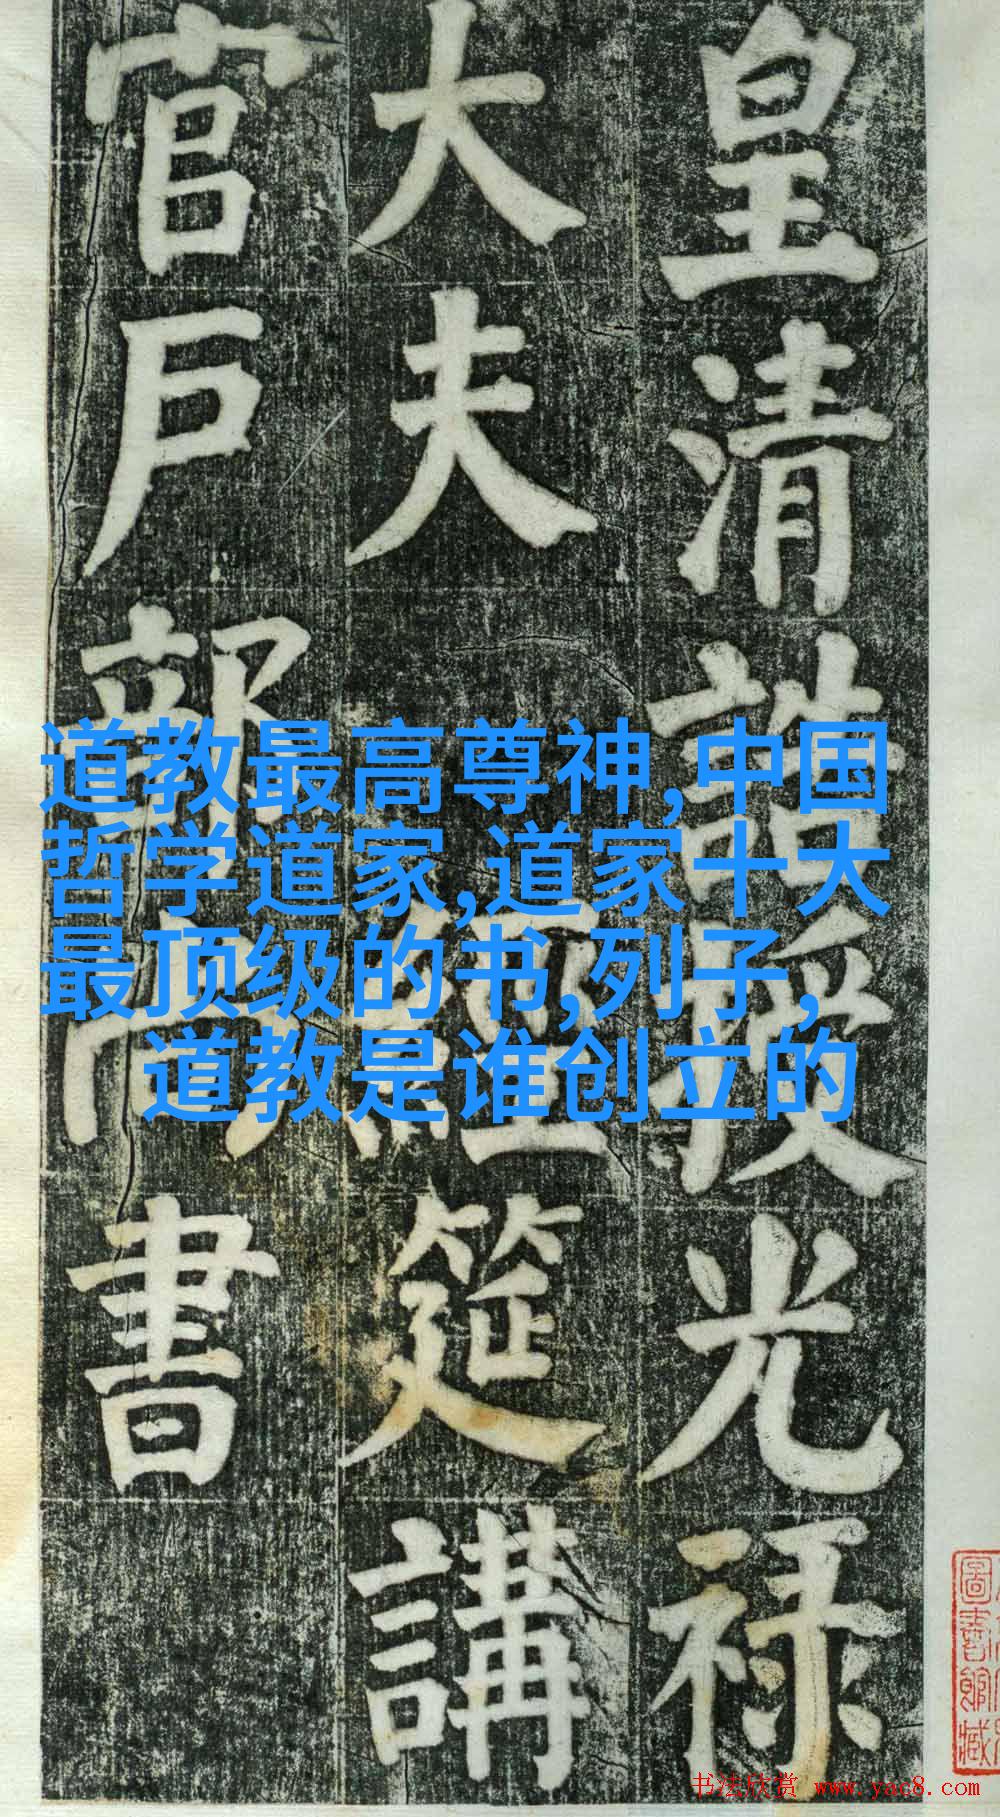 皇清誥授光禄
大夫
經筵講
官戸部尚書
道教最高尊神,中国
哲学道家,道家十大
最顶级的书,列子,
道教是谁创立的
圖書館藏
书法欣赏 www.yac8.com